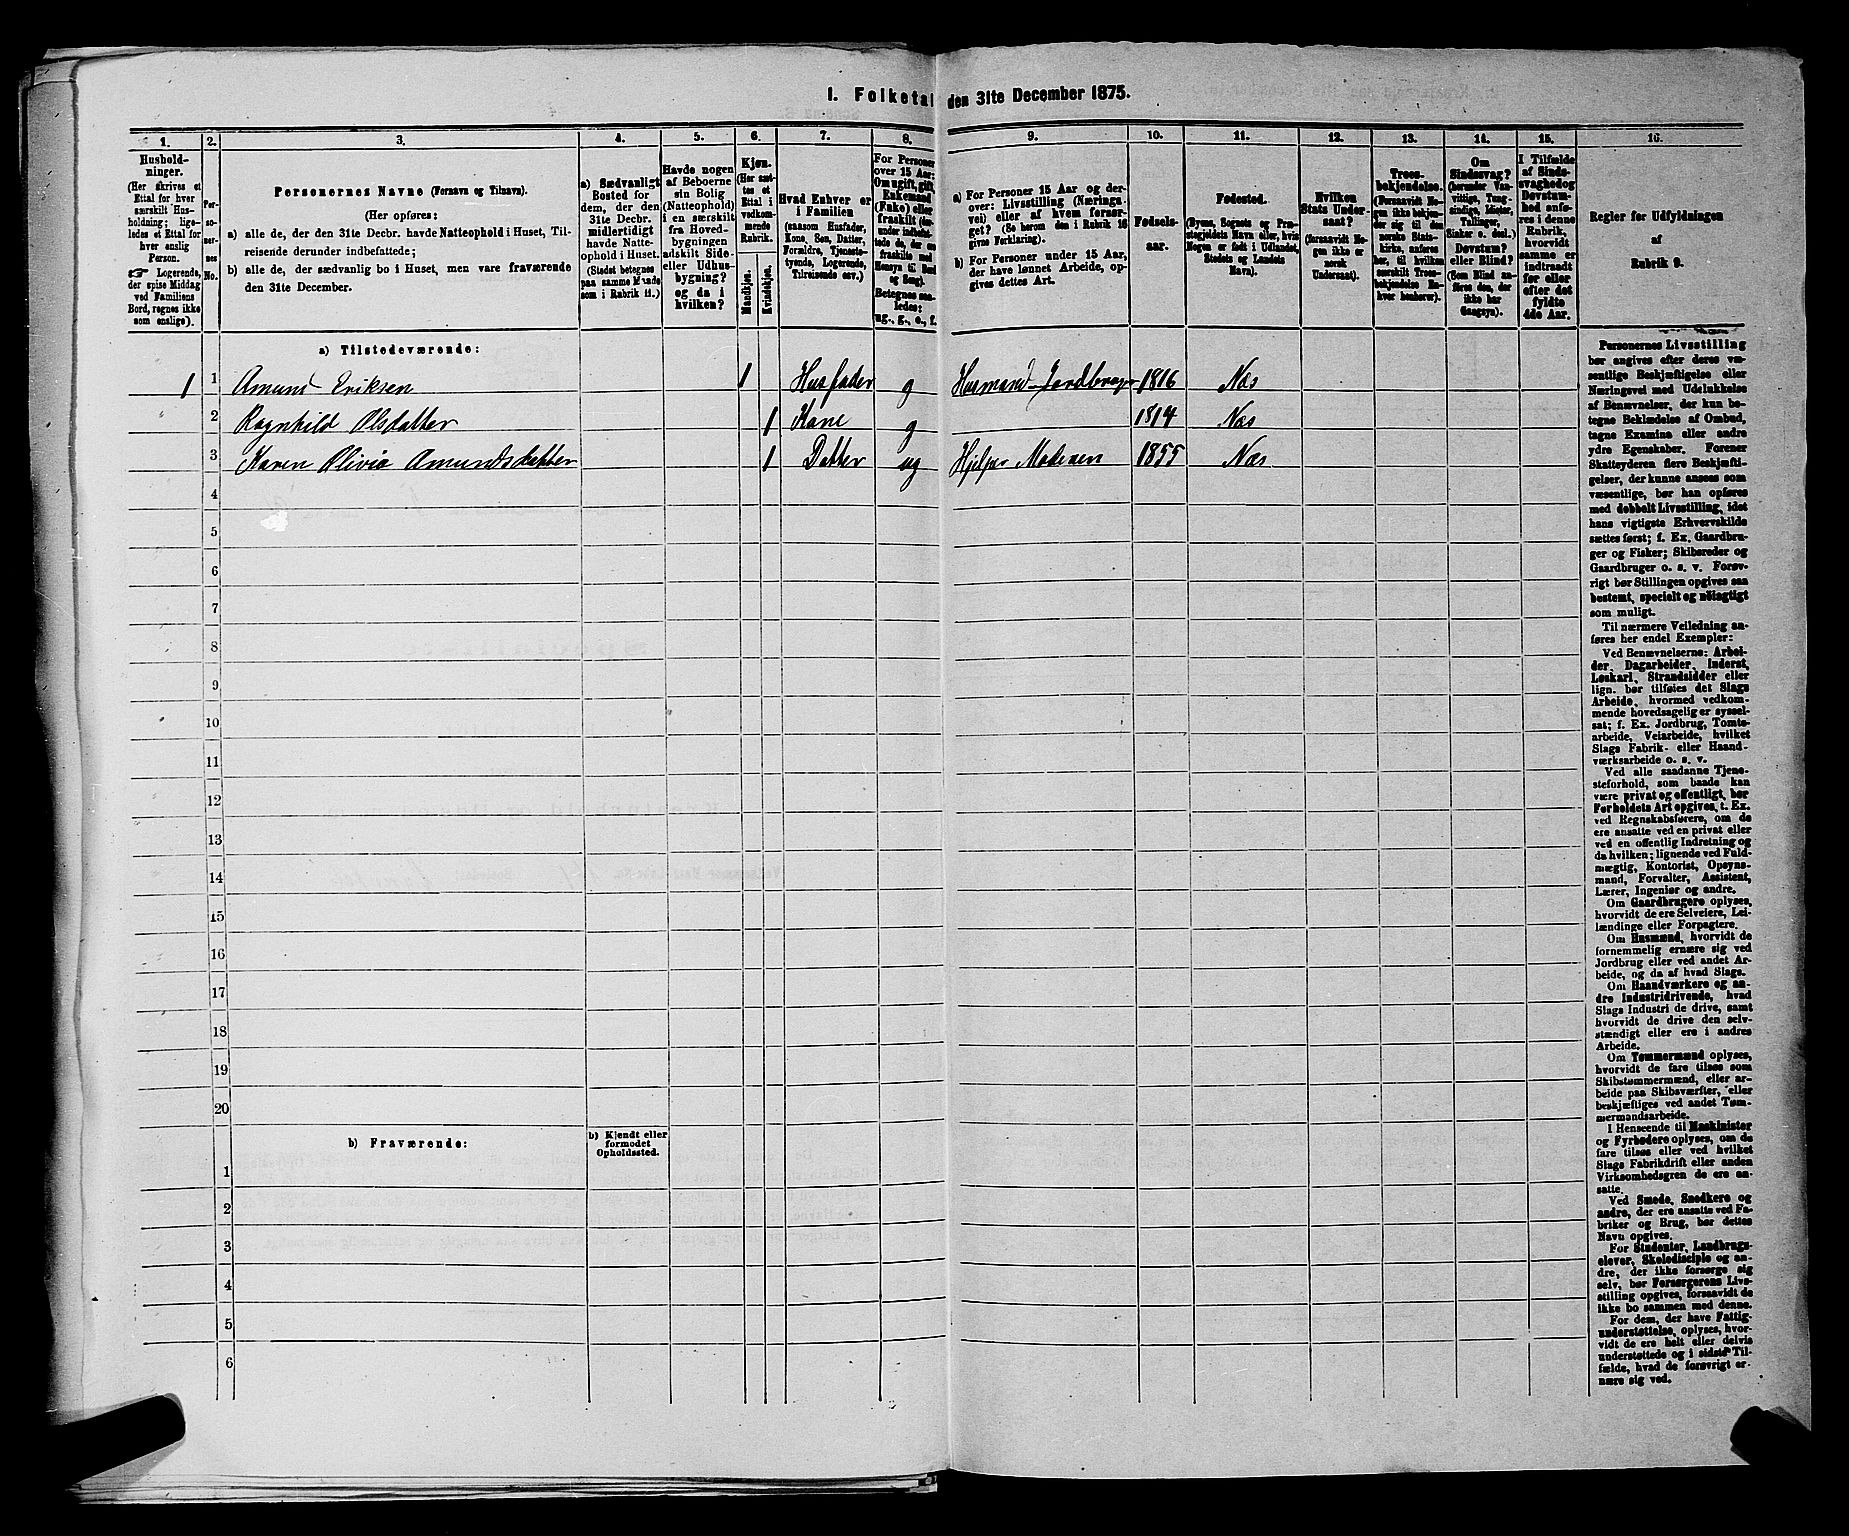 I. Folketal den 31te December 1875.
1. 2. 3. 4. 5. 6. 7. 8. 9. 10. 11. 12. 13. 14. 15. 16.
Husholdninger.
(Her skrives et
Ettal for hver
særskilt Husholdning; ligeledes et Ettal for
hver enslig
Person.
☞ Logerende,
der spise Middag
ved Familiens
Bord, regnes ikke
som enslige).
Personernes No.
Personernes Navne (Fornavn og Tilnavn).
(Her opføres:
a) alle de, der den 31te Decbr. havde Natteophold i Huset, Tilreisende derunder indbefattede;
b) alle de, der sædvanlig bo i Huset, men vare fraværende
den 31te December.
a) Sædvanligt
Bosted for
dem, der den
31te Decbr.
midlertidigt
havde Natteophold i Huset.
(Stedet betegnes
paa samme Maade
som i Rubrik 11.)
Havde nogen
af Beboerne
sin Bolig
(Natteophold)
i en særskilt
fra Hovedbygningen
adskilt Side-
eller Udhusbygning?
og da i
hvilken?
Kjøn.
(Her sættes et
Ettal i
vedkommende
Rubrik.
Mandkjøn.
Kvindekjøn.
Hvad Enhver er
i Familien
(saasom Husfader,
Kone, Søn, Datter,
Forældre, Tjenestetyende, Logerende,
Tilreisende osv.)
For Personer
over 15 Aar:
Om ugift, gift,
Enkemand
(Enke) eller
fraskilt
Betegnes saaledes:
ug., g., e., f.
a) For Personer 15 Aar og derover: Livsstilling (Næringsvei) eller af hvem forsørget? (Se herom den i Rubrik 16
givne Forklaring).
b) For Personer under 15 Aar,
der have lønnet Arbeide, opgives dettes Art.
Fødselsaar.
Fødested.
(Byens, Sognets og Præstegjeldets Navn eller, hvis
Nogen er født i Udlandet,
Stedets og Landets
Navn).
Hvilken
Stats Undersaat?
(forsaavidt Nogen ikke er
norsk
Undersaat).
Troesbekjendelse.
(Forsaavidt Nogen ikke bekjender sig til den
norske Statskirke, anføres
her, til hvilken
særskilt Troesbekjendelse Enhver henhører).
Om
Sindssvag?
(herunder Vanvittige, Tungsindige, Idioter,
Tullinger,
Sinker o. desl.)
Døvstum?
eller Blind?
(Som Blind anføres den, der
ikke har
Gangsyn).
I Tilfælde
af Sindssvaghed og
Døvstumhed anføres i denne
Rubrik,
hvorvidt
samme er
indtraadt
før eller
efter det
fyldte
4de Aar.
Regler for Udfyldningen
af
Rubrik 9.
a) Tilstedeværende:
1 1 Amund Eriksen 1 Husfader g Husmand Jordbruger 1816 Næs
2 Ragnhild Olsdatter 1 Kone g 1814 Næs
3 Karen Olivia Amundsdatter 1 Datter ug Hjelper Moderen 1855 Næs
4
5
6
7
8
9
10
11
12
13
14
15
16
17
18
19
20
b) Fraværende:
b) Kjendt eller
formodet
Opholdssted.
1
2
3
4
5
6
Personernes Livsstilling
bør angives efter deres væsentlige Beskjæftigelse eller
Næringsvei med Udelukkelse
af Benævnelser, der kun betegne Beklædelse af Ombud,
tagne Examina eller andre
ydre Egenskaber. Forener
Skatteyderen flere Beskjæftigelser, der kunne ansees som
væsentlige, bør han opføres
med dobbelt Livsstilling, idet
hans vigtigste Erhvervskilde
sættes først; f. Ex. Gaardbruger og Fisker; Skibsreder og
Gaardbruger o. s. v. Forøvrigt bør Stillingen opgives saa
bestemt, specielt og nöiagtigt
som muligt.
Til nærmere Veiledning anføres her endel Exempler:
Ved Benævnelserne: Arbeider, Dagarbeider, Inderst,
Løskarl, Strandsidder eller
lign. bør tilføies det Slags
Arbeide, hvormed vedkommende hovedsagelig er sysselsat; f. Ex. Jordbrug, Tomtearbeide, Veiarbeide, hvilket
Slags Fabrik- eller Haandværksarbeide o. s. v.
Ved alle saadanne Tjenesteforhold, som baade kan
være privat og offentligt, bør
Forholdets Art opgives, t. Ex.
ved Regnskabsførere, om de
ere ansatte ved en privat eller
ved en offentlig Indretning og
da hvilken; lignende ved Fuldmægtig, Kontorist, Opsynsmand, Forvalter, Assistent,
Lærer, Ingeniør og andre.
Om Gaardbrugere oplyses,
hvorvidt de ere Selveiere, Leilændinge eller Forpagtere.
Om Husmænd, hvorvidt de
fornemmelig ernære sig ved
Jordbrug eller ved andet Arbeide, og da af hvad Slags.
Om Haandværkere og andre Industridrivende, hvad
Slags Industri de drive, samt
hvorvidt de drive den selvstændigt eller ere i andres
Arbeide.
Om Tømmermænd oplyses,
hvorvidt de fare tilsøs som
Skibstømmermænd, eller arbeide paa Skibsværfter, eller
beskjæftiges ved andet Tømmermandsarbeide.
I Henseende til Maskinister
og Fyrbødere oplyses, om de
fare tilsøs eller ved hvilket
Slags Fabrikdrift eller anden
Virksomhedsgren de ere ansatte.
Ved Smede, Snedkere og
andre, der ere ansatte ved Fabriker og Brug, bør dettes
Navn opgives.
For Studenter, Landbrugselever, Skoledisciple og andre, der ikke forsørge sig
selv, bør Forsørgerens Livsstilling opgives, forsaavidt de
ikke bo sammen med denne.
For dem, der have Fattigunderstøttelse, oplyses, hvorvidt de ere helt eller delvis
understøttede og i sidste Tilfælde, hvad de forøvrigt ernære sig ved.